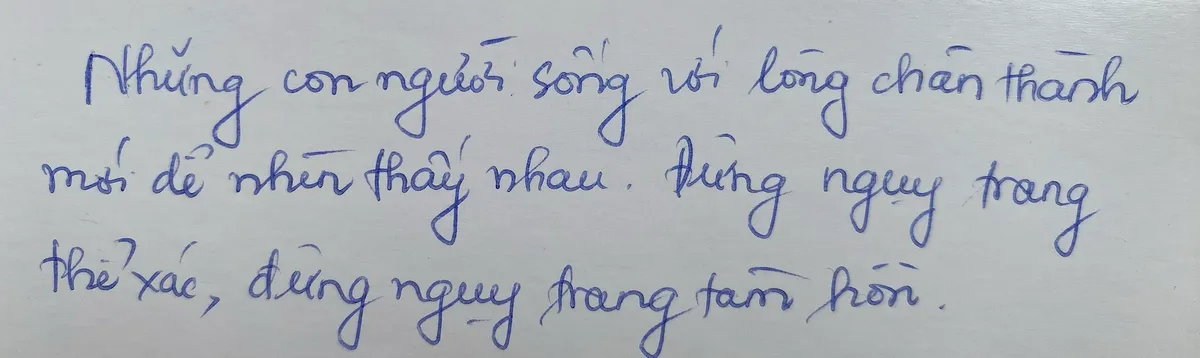 Những con người sống với lòng chân thành
mới dễ nhìn thấy nhau. Đừng ngụy trang
thể xác, đừng ngụy trang tâm hồn.